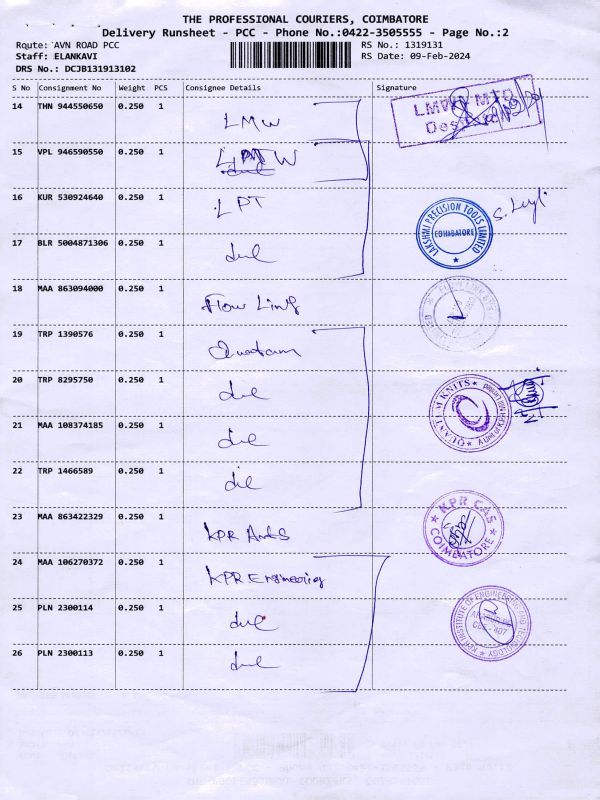 THE PROFESSIONAL COURIERS, COIMBATORE
Delivery Runsheet - PCC - Phone No.:0422-3505555 - Page No.:2
Route: AVN ROAD PCC RS No.: 1319131
Staff: ELANKAVI RS Date: 09-Feb-2024
DRS No.: DCJB131913102
S No Consignment No Weight PCS Consignee Details Signature
14 THN 944550650 0.250 1 LMW
15 VPL 946590550 0.250 1
16 KUR 530924640 0.250 1 LPT
LAKSHMI PRECISION TOOLS LIMITED
COIMBATORE
17 BLR 5004871306 0.250 1
18 MAA 863094000 0.250 1 Flow Link
19 TRP 1390576 0.250 1 Quantum
20 TRP 8295750 0.250 1
QUANTUM KNITS
21 MAA 108374185 0.250 1
22 TRP 1466589 0.250 1
23 MAA 863422329 0.250 1 KPR Arts
KPR CAS
COIMBATORE
24 MAA 106270372 0.250 1 KPR Engineering
25 PLN 2300114 0.250 1
KPR INSTITUTE OF ENGINEERING AND TECHNOLOGY
26 PLN 2300113 0.250 1